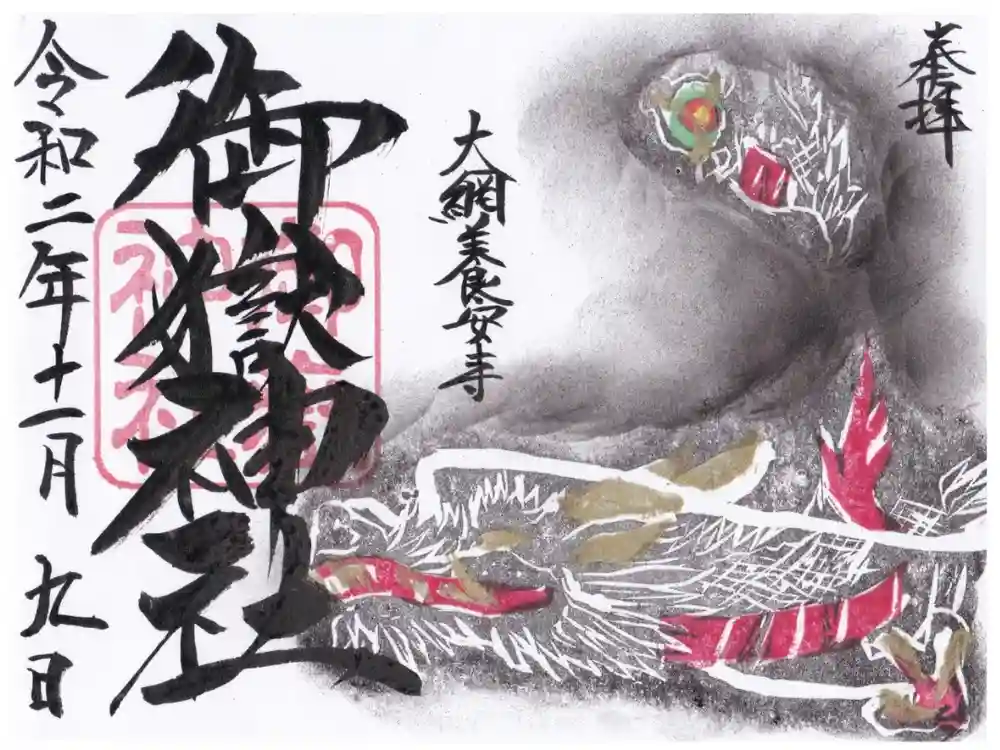 奉拝
大網養安寺
御嶽神社
令和二年十一月九日